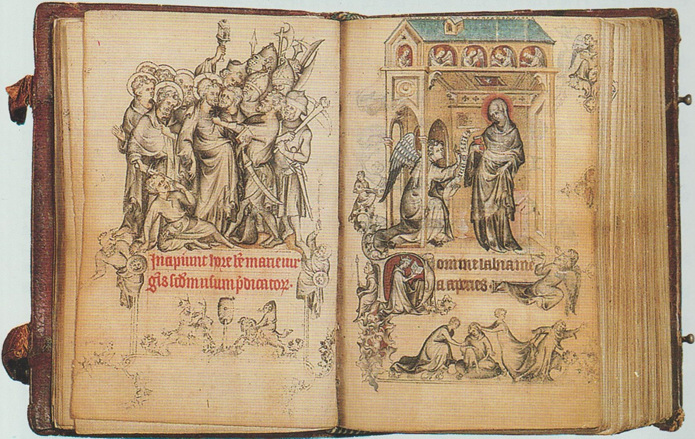 Incipiunt hore be marie uir
gis scdm usum pdicatoꝝ.
Domine labia me
a aperies